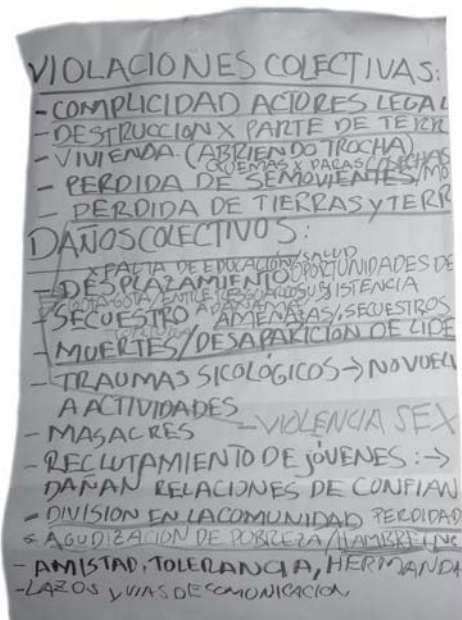 VIOLACIONES COLECTIVAS:
- COMPLICIDAD ACTORES LEGAL
- DESTRUCCION X PARTE DE TERR
- VIVIENDA (ABRIENDO TROCHA)
(QUEMAS X PARAS COSECHAS
- PERDIDA DE SEMOVIENTES/MO
- PERDIDA DE TIERRAS Y TERR
DAÑOS COLECTIVOS:
X FALTA DE EDUCACIÓN/SALUD
- DESPLAZAMIENTO OPORTUNIDADES DE
GOTA-GOTA/ENTRE RESGUARDOS SUBSISTENCIA
- SECUESTRO AMENAZAS/SECUESTROS
- MUERTES/DESAPARICION DE LIDE
- TRAUMAS SICOLÓGICOS → NO VUELV
A ACTIVIDADES
- VIOLENCIA SEX
- MASACRES
- RECLUTAMIENTO DE JÓVENES : →
DAÑAN RELACIONES DE CONFIAN
- DIVISION EN LA COMUNIDAD PERDIDAD
AGUDIZACION DE POBREZA/HAMBRE
- AMISTAD, TOLERANCIA, HERMANDA
- LAZOS Y VIAS DE COMUNICACION